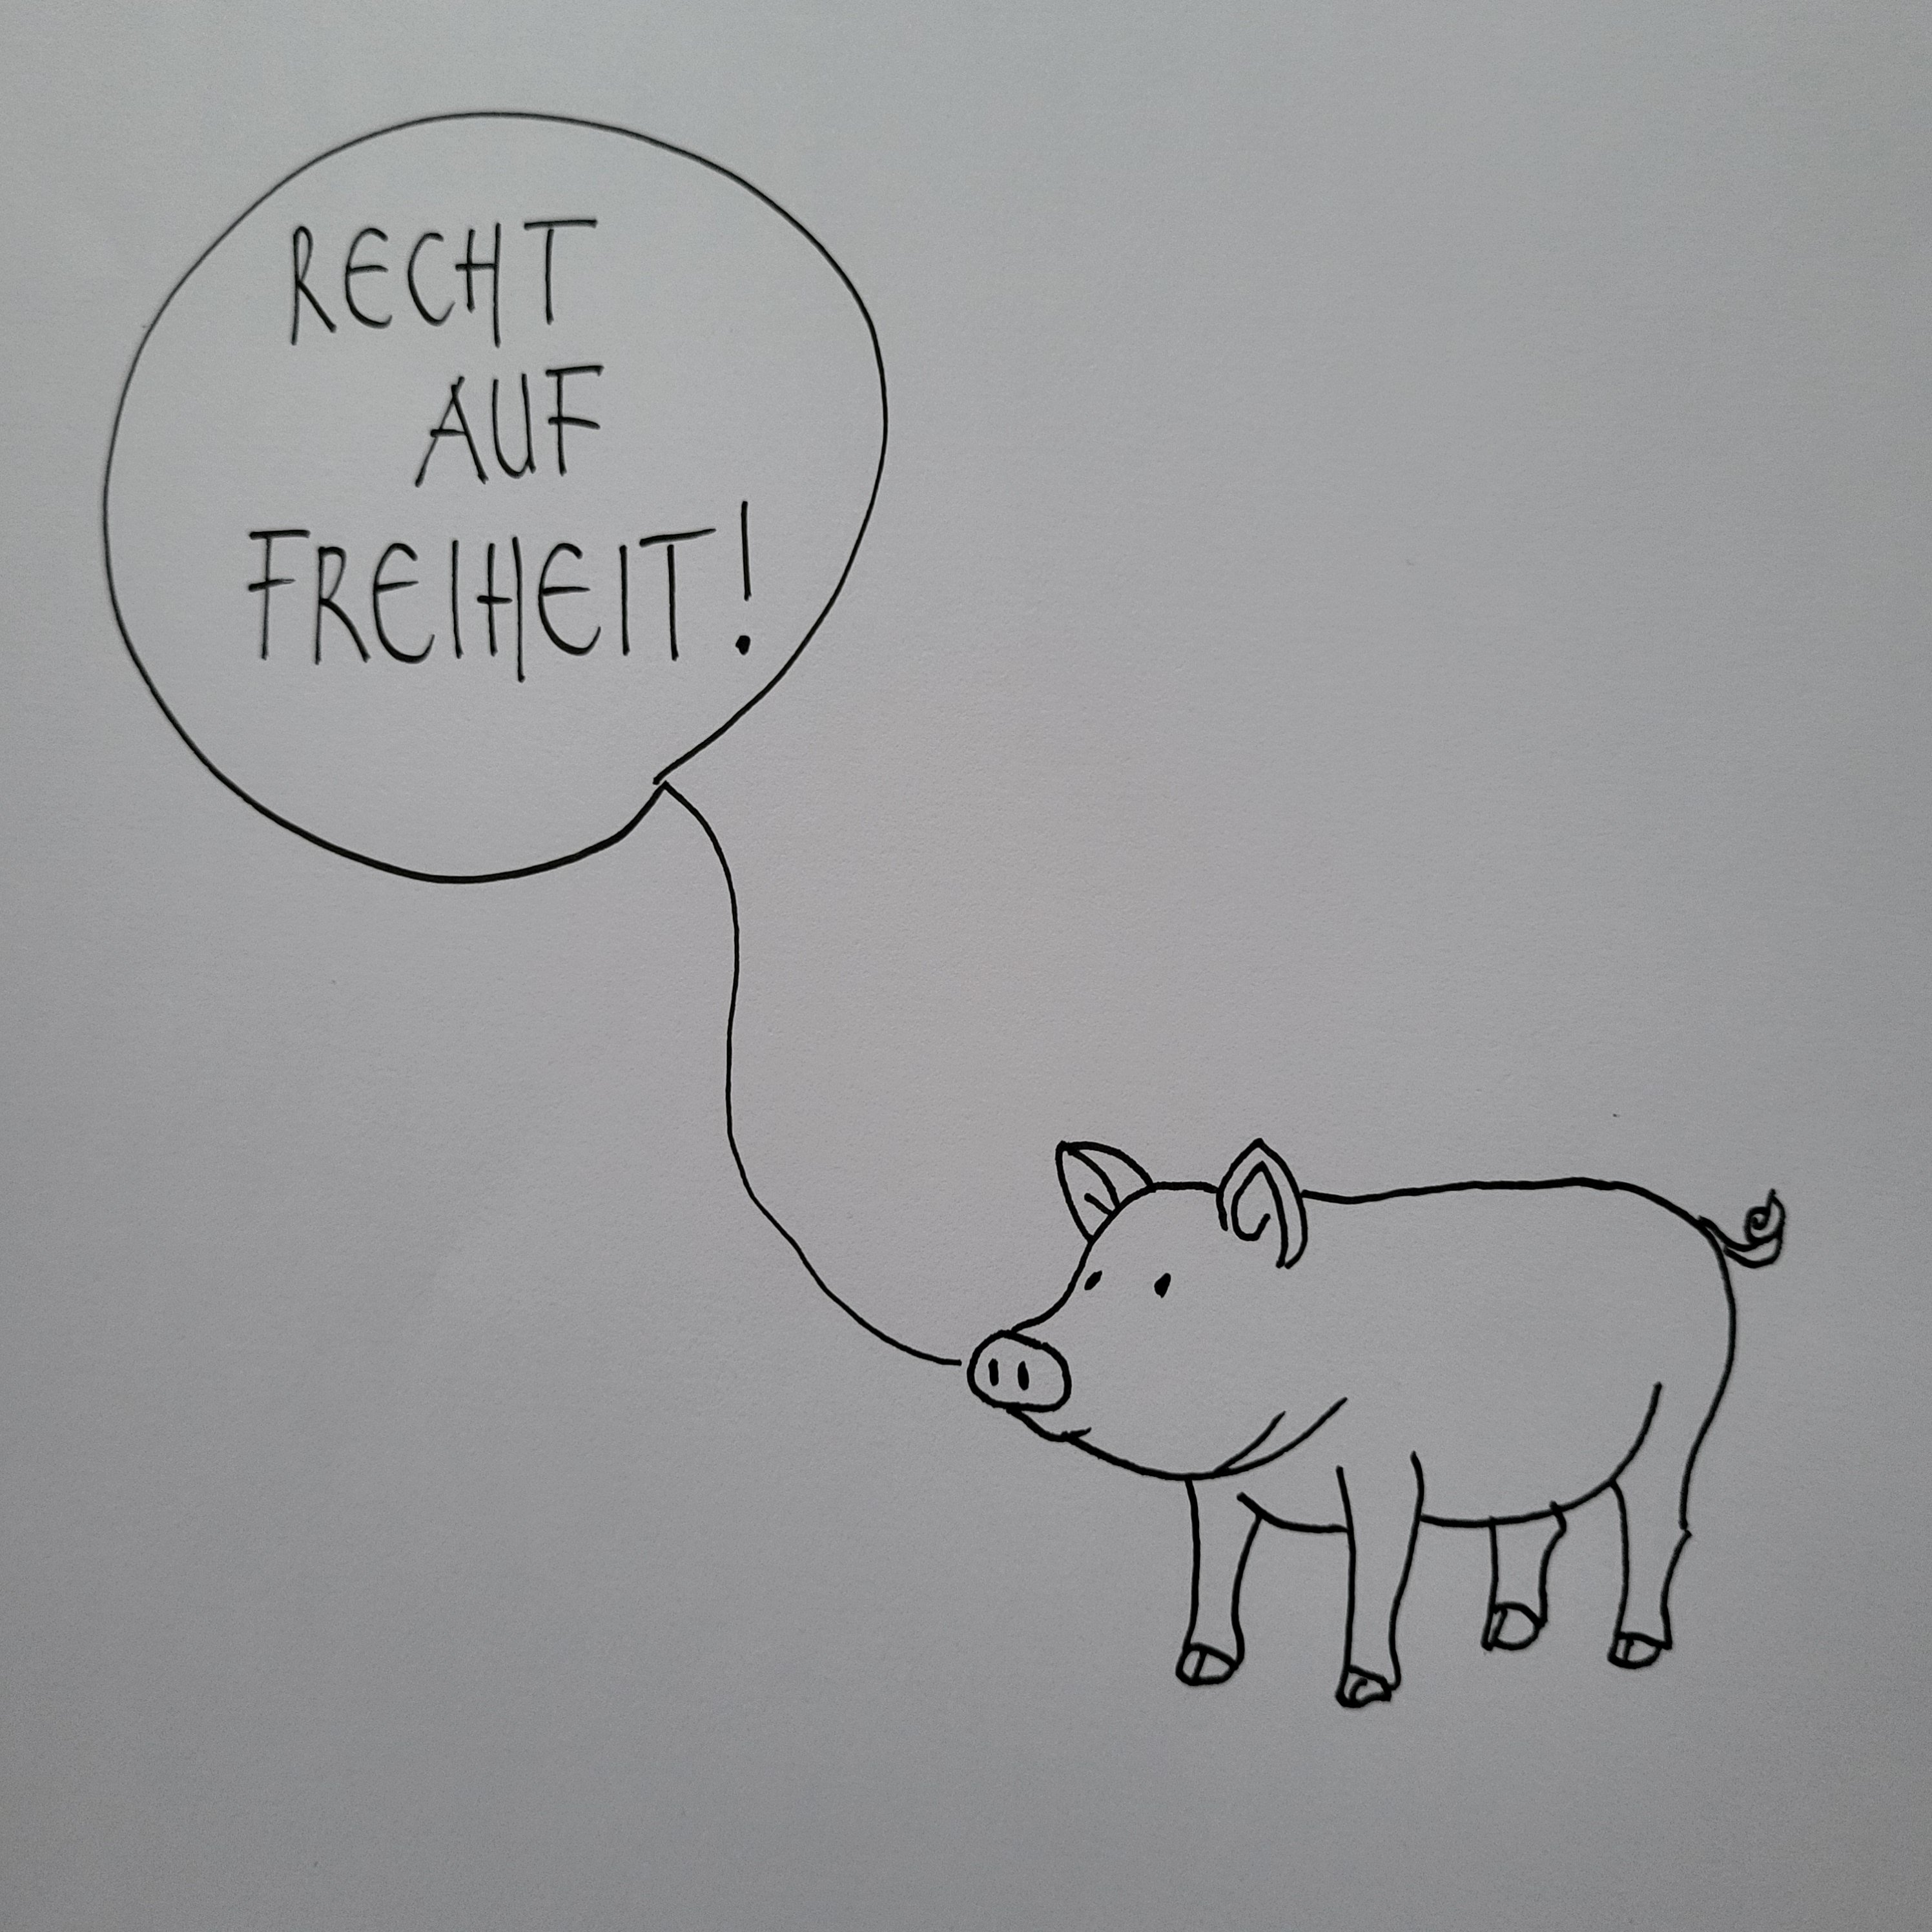 RECHT
AUF
FREIHEIT!